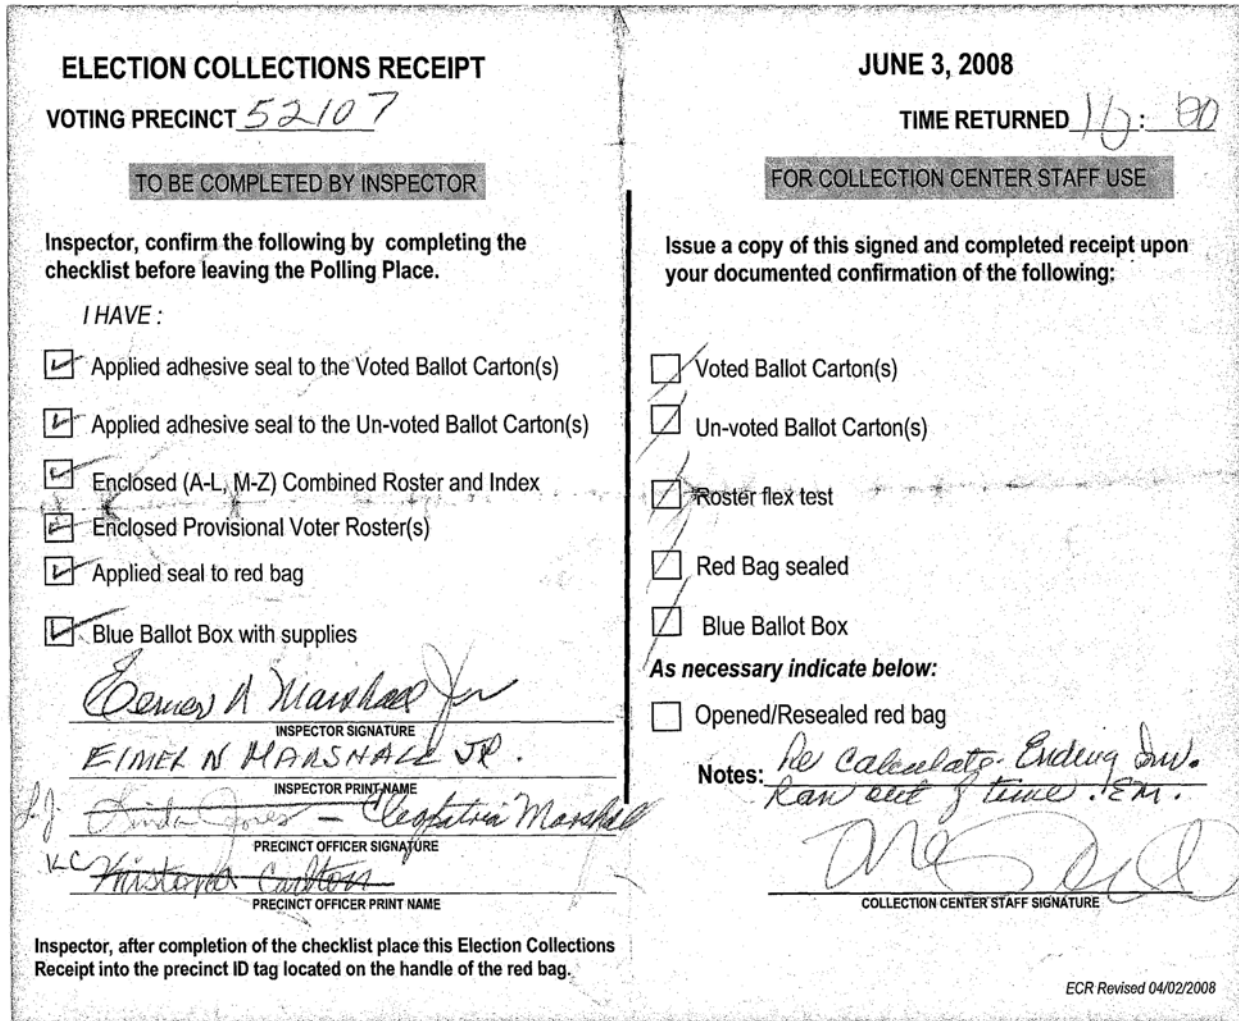 ELECTION COLLECTIONS RECEIPT
VOTING PRECINCT 52107
TO BE COMPLETED BY INSPECTOR
Inspector, confirm the following by completing the
checklist before leaving the Polling Place.
I HAVE :
Applied adhesive seal to the Voted Ballot Carton(s)
Applied adhesive seal to the Un-voted Ballot Carton(s)
Enclosed (A-L, M-Z) Combined Roster and Index
Enclosed Provisional Voter Roster(s)
Applied seal to red bag
Blue Ballot Box with supplies
Elmer N Marshall Jr
INSPECTOR SIGNATURE
ELMER N MARSHALL JR.
INSPECTOR PRINT NAME
L.J. Linda Jones – Cleopatria Marshall
PRECINCT OFFICER SIGNATURE
KC Carlton
PRECINCT OFFICER PRINT NAME
Inspector, after completion of the checklist place this Election Collections
Receipt into the precinct ID tag located on the handle of the red bag.
JUNE 3, 2008
TIME RETURNED :
FOR COLLECTION CENTER STAFF USE
Issue a copy of this signed and completed receipt upon
your documented confirmation of the following:
Voted Ballot Carton(s)
Un-voted Ballot Carton(s)
Roster flex test
Red Bag sealed
Blue Ballot Box
As necessary indicate below:
Opened/Resealed red bag
Notes: Re Calculate Ending Inv.
Ran out of time. EM.
COLLECTION CENTER STAFF SIGNATURE
ECR Revised 04/02/2008